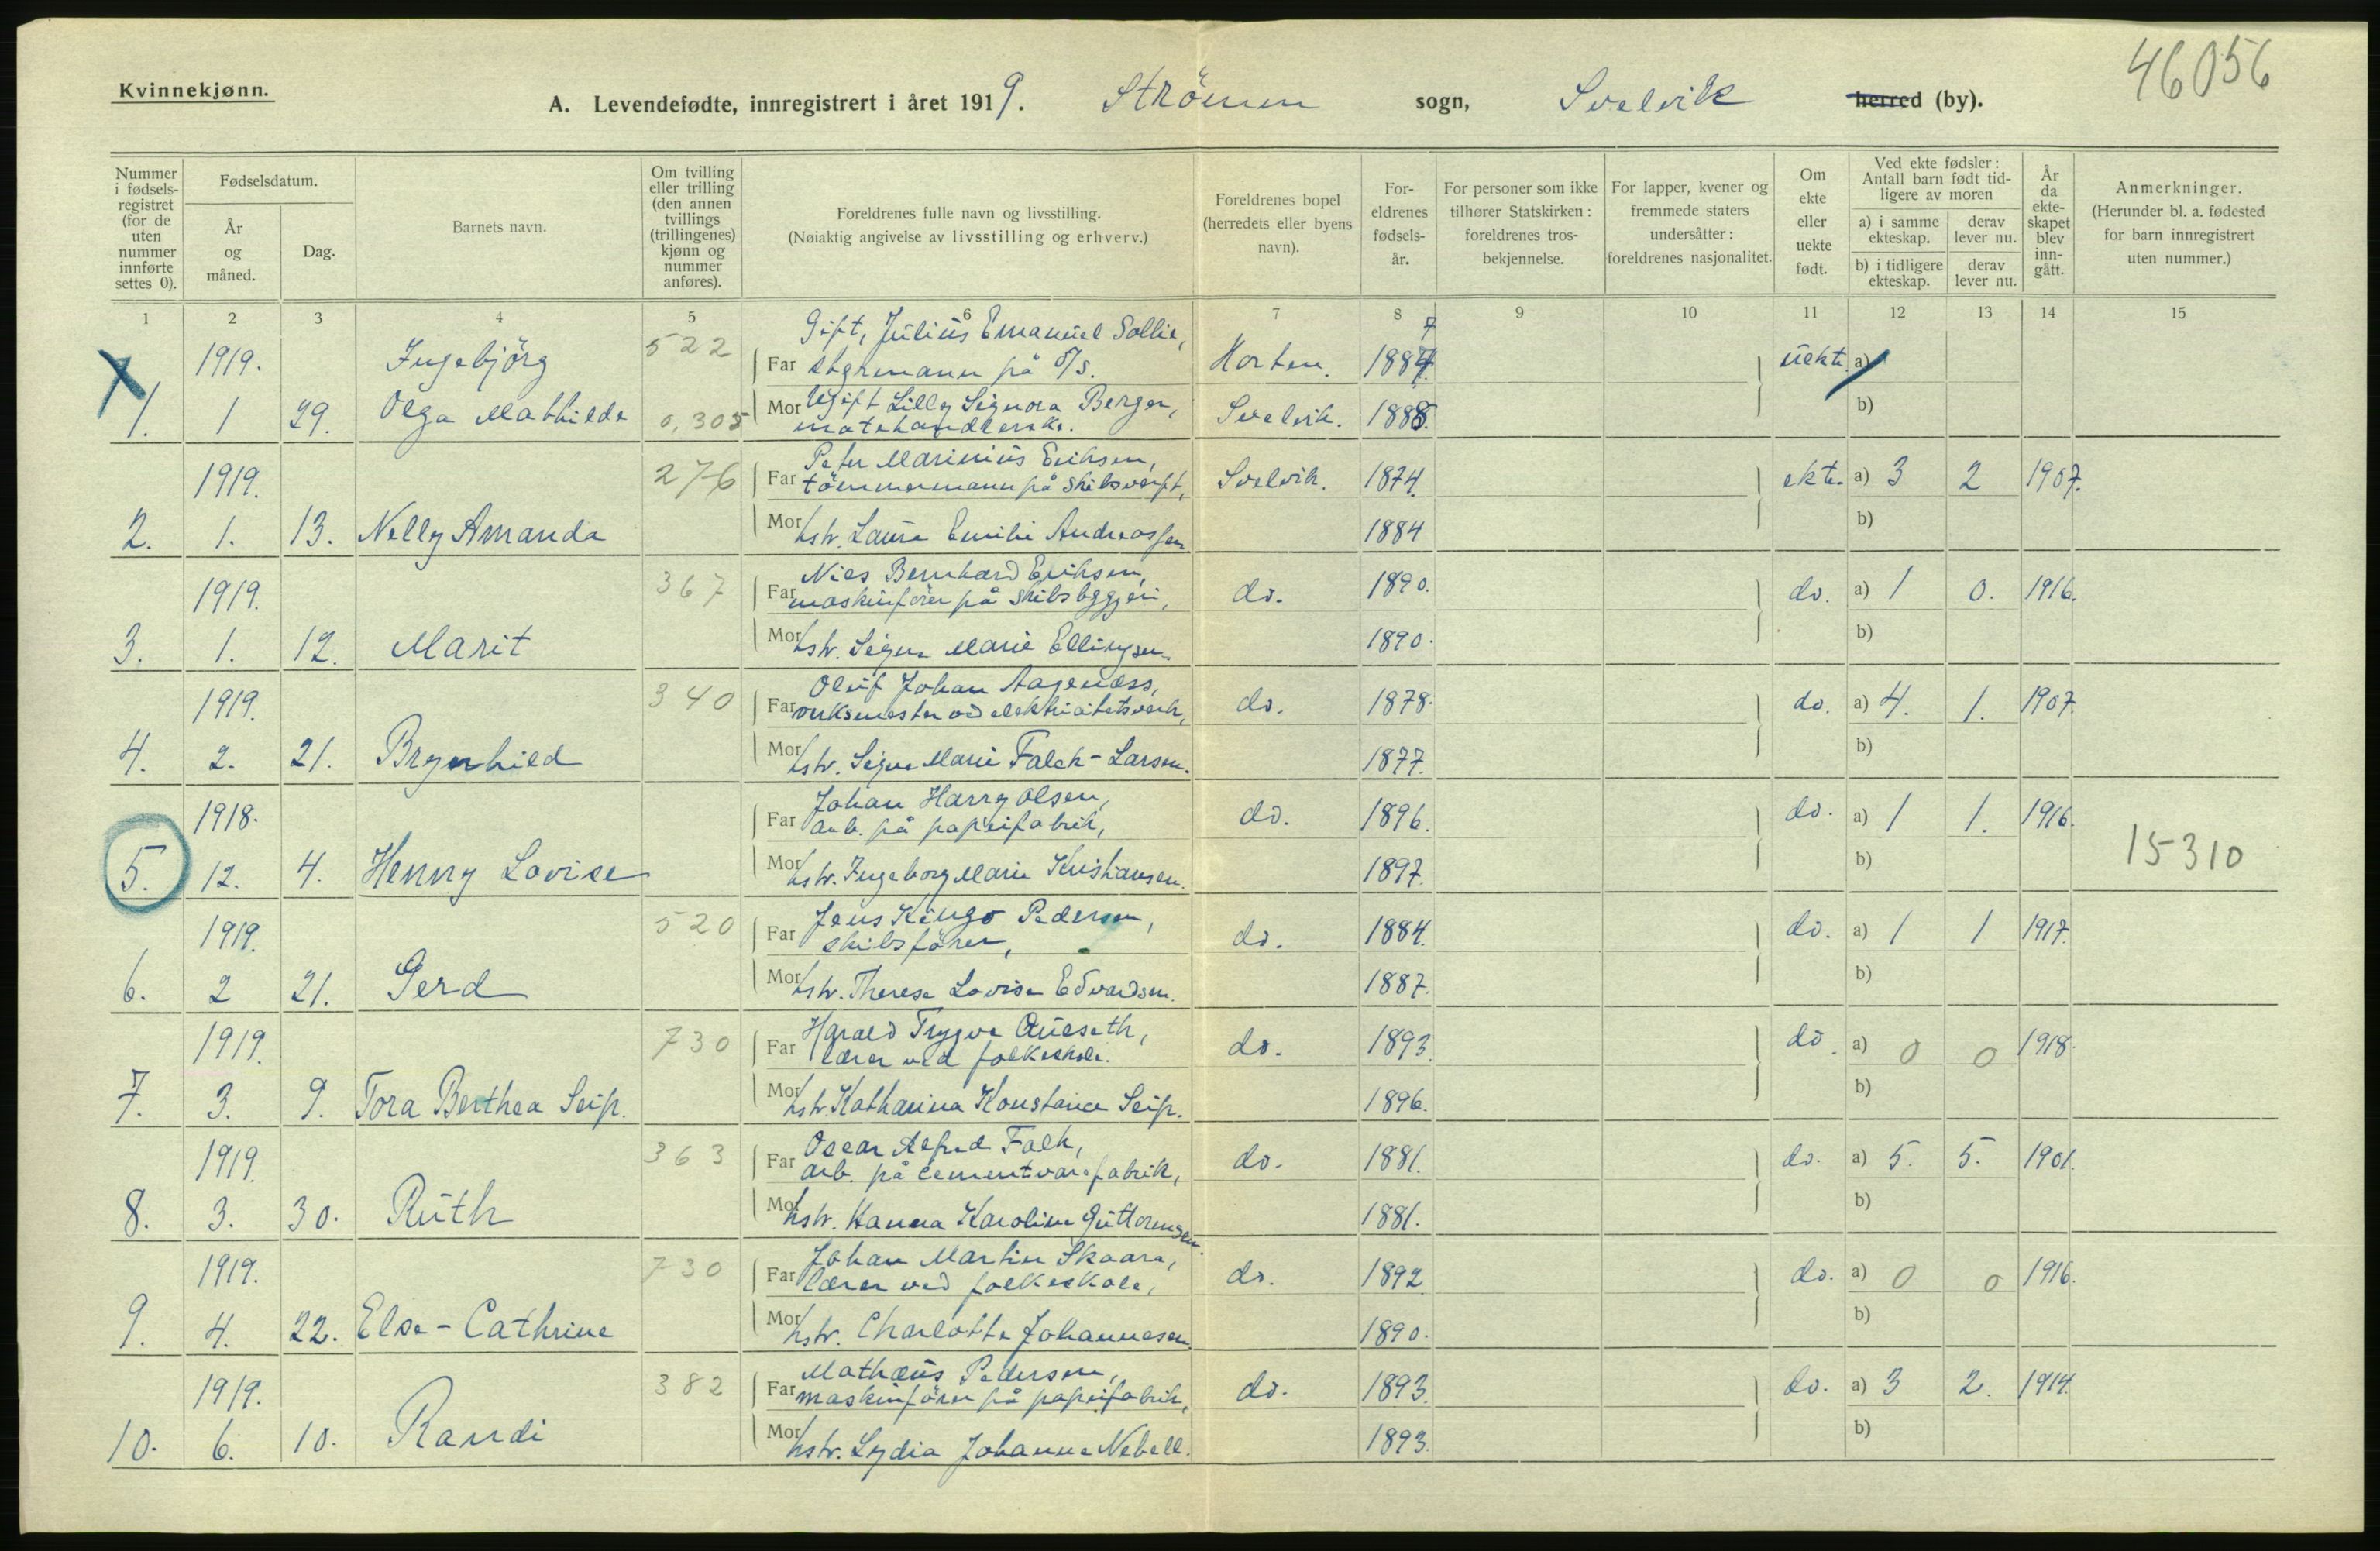 46056
Kvinnekjønn.
A. Levendefødte, innregistrert i året 1919. Strömm sogn, Svelvik herred (by).
Nummer i fødselsregistret (for de uten nummer innførte settes 0).
Fødselsdatum.
År og måned.
Dag.
Barnets navn.
Om tvilling eller trilling (den annen tvillings (trillingenes) kjønn og nummer anføres).
Foreldrenes fulle navn og livsstilling.
(Nøiaktig angivelse av livsstilling og erhverv.)
Foreldrenes bopel (herredets eller byens navn).
Foreldrenes fødselsår.
For personer som ikke tilhører Statskirken: foreldrenes trosbekjennelse.
For lapper, kvener og fremmede staters undersåtter: foreldrenes nasjonalitet.
Om ekte eller uekte født.
Ved ekte fødsler: Antall barn født tidligere av moren
a) i samme ekteskap.
derav lever nu.
b) i tidligere ekteskap.
derav lever nu.
År da ekteskapet blev inngått.
Anmerkninger.
(Herunder bl. a. fødested for barn innregistrert uten nummer.)
1 2 3 4 5 6 7 8 9 10 11 12 13 14 15
1919. Ingebjörg 522 Far Gift, Julius Emanuel Sollie, Horten. 1887 uekte a)
styrmann på D/S.
1. 1 29. Olga Mathilde 0,305 Mor Ugift Lilly Signora Berger, Svelvik. 1888. b)
motehandlerske.
1919. 276 Far Peter Marinius Eriksen, Svelvik. 1874. ekte. a) 3 2 1907.
tömmermann på skibsverft,
2. 1. 13. Nelly Amanda Mor hstr. Laura Emilie Andreassen 1884 b)
1919. 367 Far Nils Bernhard Eriksen, do. 1890. do. a) 1 0. 1916.
maskinförer på skibsbyggeri,
3. 1. 12. Marit Mor hstr. Signe Marie Ellingsen. 1890. b)
1919. 340 Far Oluf Johan Aagenæss, do. 1878. do. a) 4. 1. 1907.
verksmester ved elektricitetsverk,
4. 2. 21. Brynhild Mor hstr. Signe Marie Falch-Larsen. 1877. b)
1918. Far Johan Harry Olsen, do. 1896. do. a) 1 1. 1916. 15310
arb. på papirfabrik,
5. 12. 4. Henny Lovise Mor hstr. Ingeborg Marie Kristiansen. 1897. b)
1919. 520 Far Jens Kingo Pedersen, do. 1884. do. a) 1 1 1917.
skibsförer,
6. 2 21. Gerd Mor hstr. Therese Lovise Edvardsen. 1887. b)
1919. 730 Far Harald Trygve Aueseth, do. 1893. do. a) 0 0 1918.
lærer ved folkeskole.
7. 3. 9. Tora Berthea Seip. Mor hstr. Katharina Konstance Seip. 1896. b)
1919. 363 Far Oscar Alfred Falk, do. 1881. do. a) 5. 5. 1901.
arb. på cementvarefabrik,
8. 3. 30. Ruth Mor hstr. Hanna Karoline Guttormsen. 1881. b)
1919. 730 Far Johan Martin Skaara, do. 1892 do. a) 0 0 1916.
lærer ved folkeskole,
9. 4. 22. Else-Cathrine Mor hstr. Charlotte Johannesen 1890. b)
1919. 382 Far Mathæus Pedersen, do. 1893. do. a) 3 2. 1914.
maskinförer på papirfabrik,
10. 6. 10. Randi Mor hstr. Lydia Johanne Nebell. 1893. b)